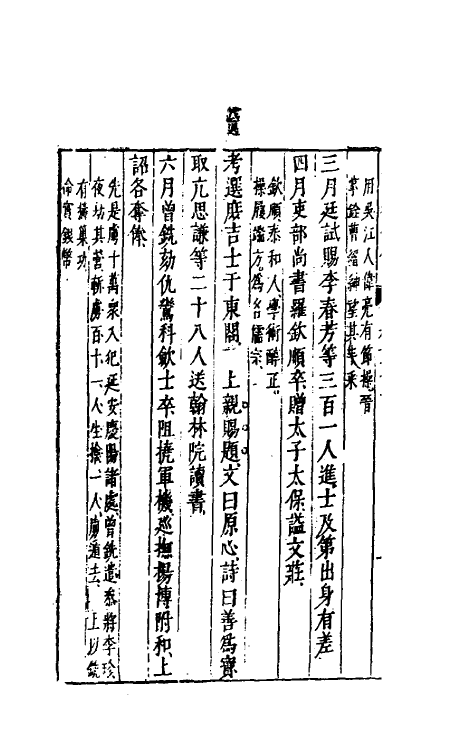 用吳江人偉亮有節概晉
掌銓曹縉紳望其丰采
三月廷試賜李春芳等三百一人進士及第出身有差
四月吏部尚書羅欽順卒贈太子太保謚文莊
欽順泰和人學術醇正
操履端方爲名儒宗
考選庶吉士于東閣 上親賜題文曰原心詩曰善爲寶
取亢思謙等二十八人送翰林院讀書
六月曾銑劾仇鸞科歛士卒阻撓軍機巡撫楊博附和上
詔各奪俸
先是虜十萬衆入犯延安慶陽諸處曾銑遣叅將李珍
夜劫其營斬虜百十一人生擒一人虜遁去上以銑
有搗巢功
命賞銀幣